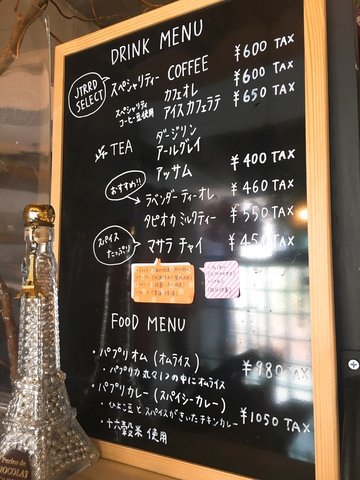 DRINK MENU
JTRRD SELECT
スペシャリティー COFFEE ¥600 TAX
カフェオレ ¥600 TAX
スペシャリティ コーヒー豆使用
アイスカフェラテ ¥650 TAX
TEA
ダージリン
アールグレイ
アッサム ¥400 TAX
おすすめ!!
ラベンダーティーオレ ¥460 TAX
タピオカ ミルクティー ¥550 TAX
スパイスたっぷり♪
マサラ チャイ ¥450 TAX
FOOD MENU
・パプリオム (オムライス) ¥980 TAX
・パプリカ丸マイつの中にオムライス
・パプリカレー (スパイシーカレー)
・ひよこ豆とスパイスがきいたチキンカレー ¥1050 TAX
・十六穀米 使用
CHOCOLAT